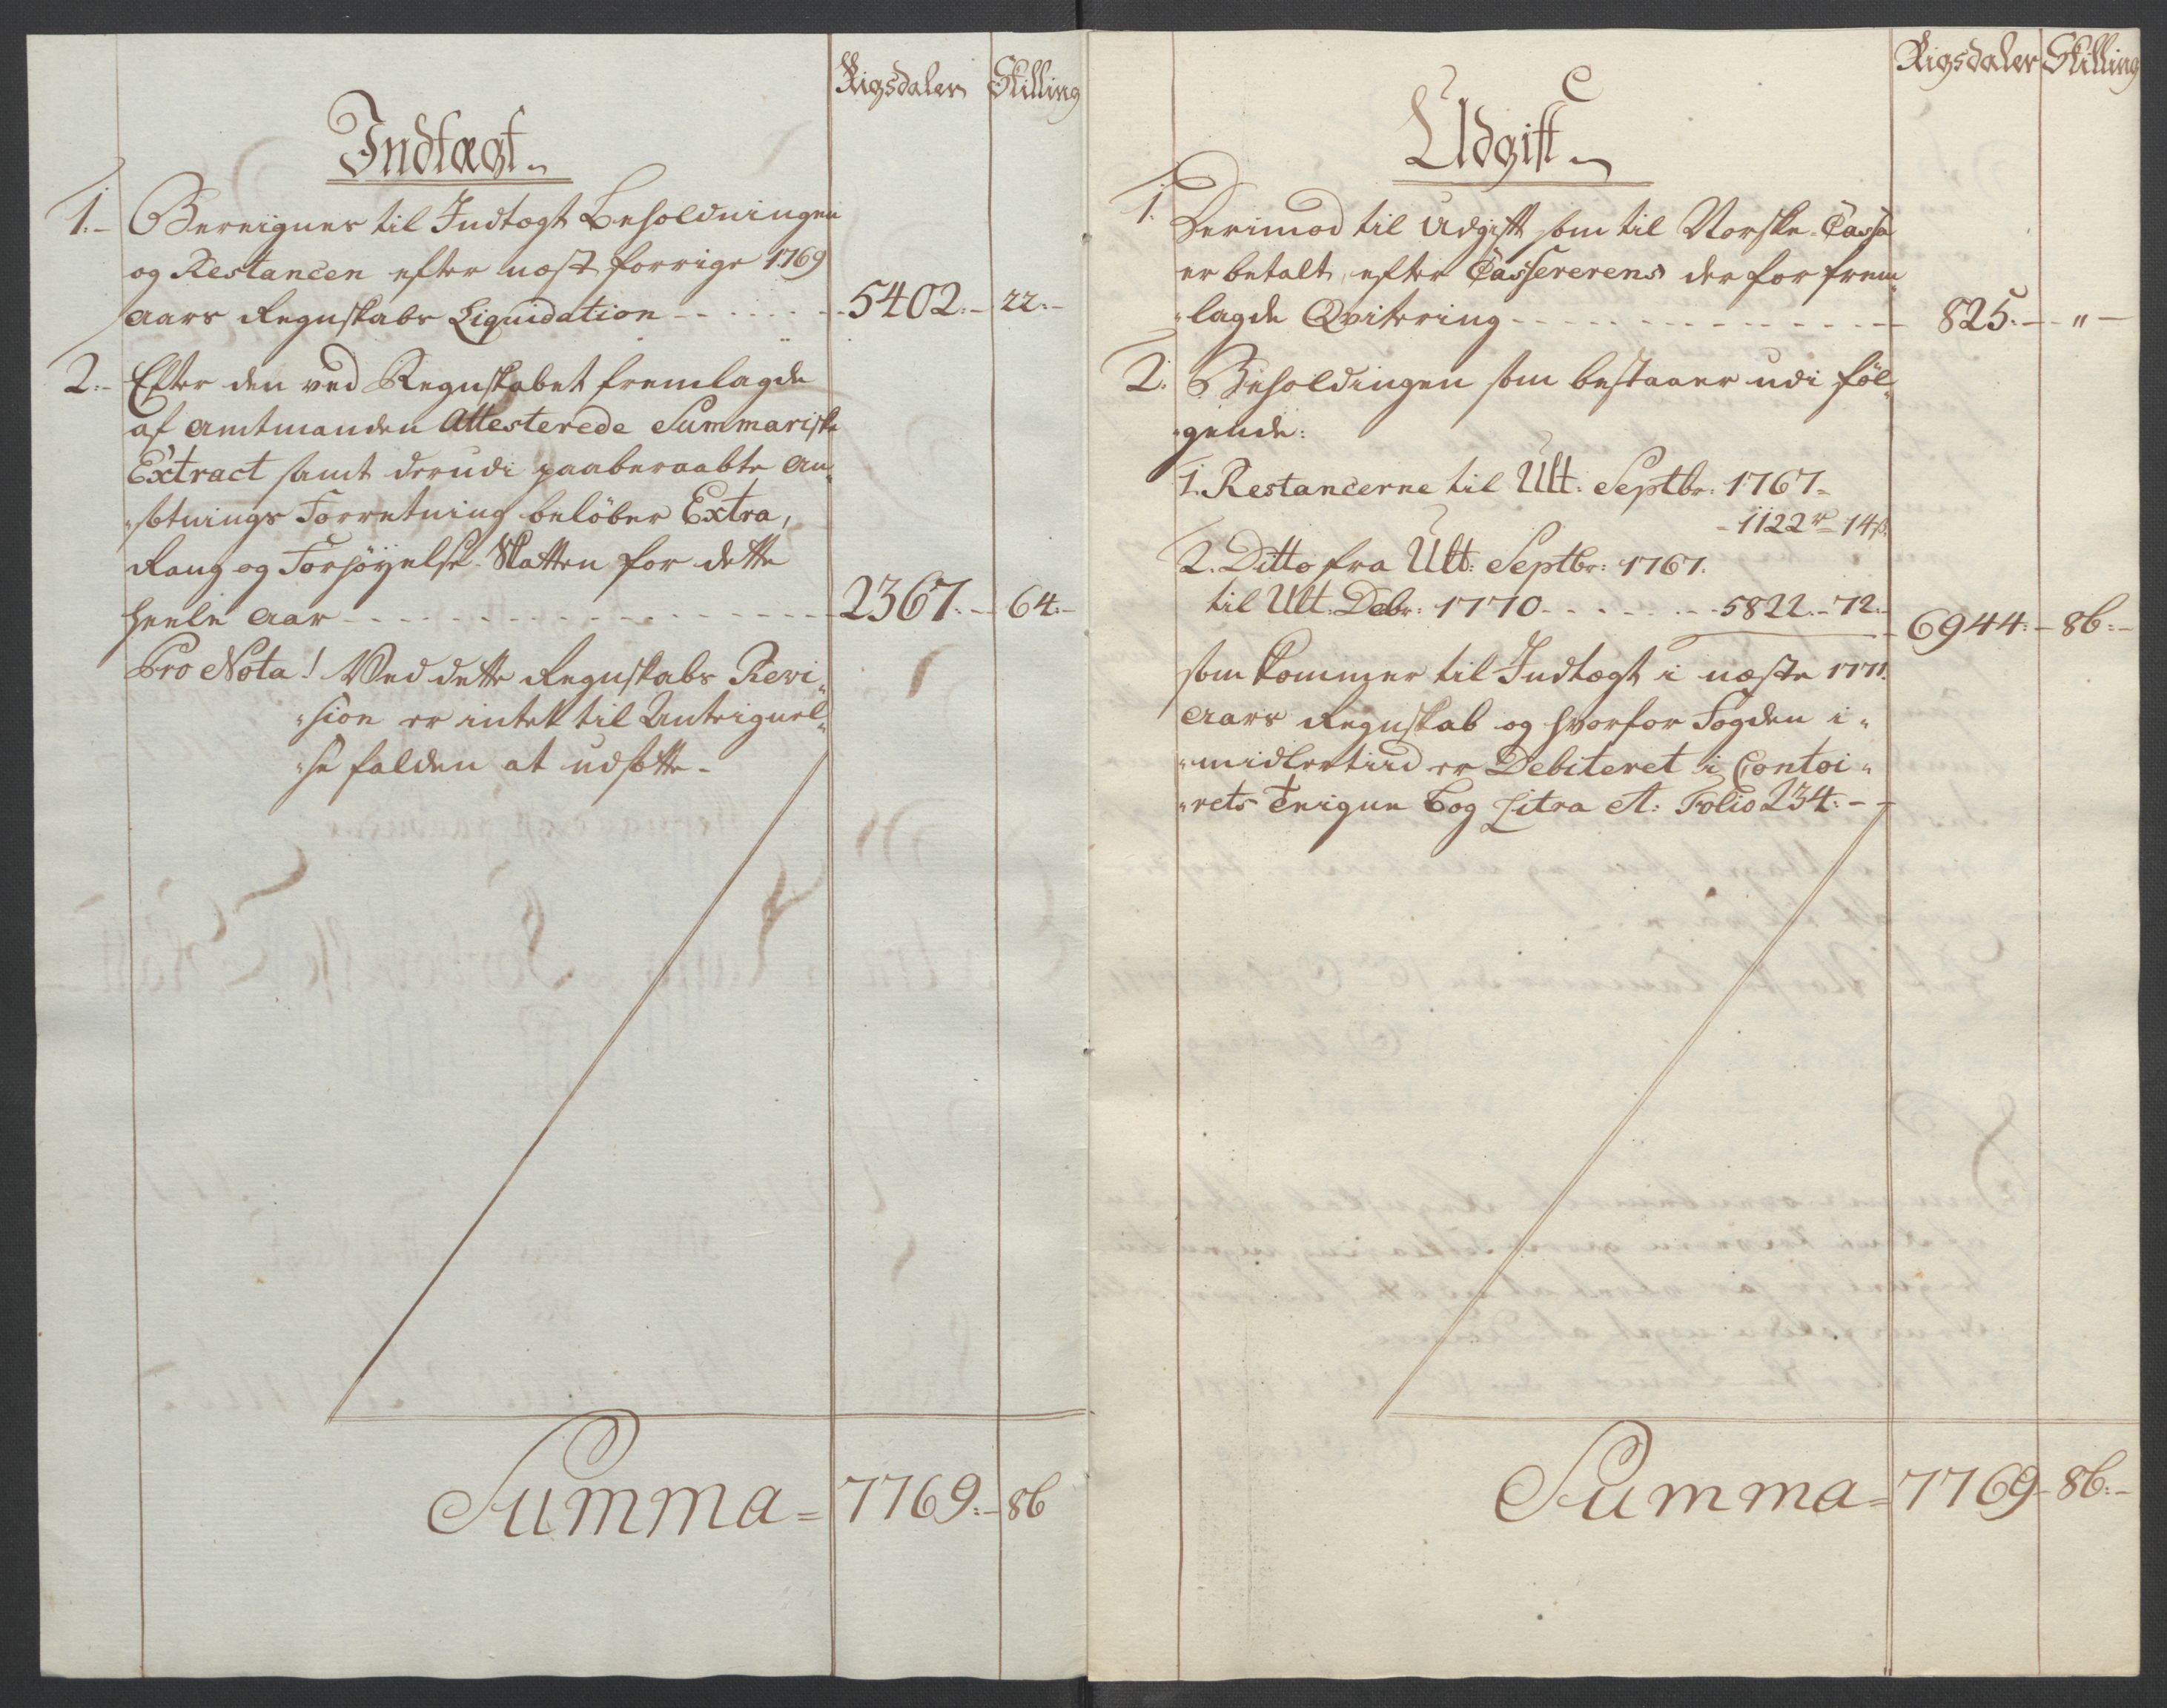 Rigsdaler Skilling
Indtægt
1. Bereignes til Indtægt Beholdningen
og Restancen efter næst forrige 1769
Aars Regnskabs Liqvidation 5402. 22.
2. Efter den ved Regnskabet fremlagde
af Amtmanden Attesterede Summariske
Extract samt derudi paaberaabte An„
„sætnings Forretning beløber Extra,
Rang og Forhöyelse Skatten for dette
heele Aar 2367. 64.
Pro Nota! Ved dette Regnskabs Revi„
„sion er intet til Anteignel„
„se falden at udsætte.
Summa 7769. 86
Rigsdaler Skilling
Udgift
1. Derimod til Udgift som til Norske Cassa
er betalt, efter Cassererens der for frem„
„lagde Qvitering 825. „
2. Beholdingen som bestaaer udi föl„
„gende:
1. Restancerne til Ult: Septbr: 1767
1122 rd 14 s.
2. Ditto fra Ult: Septbr: 1767.
til Ult: Debr: 1770 5822. 72.
6944. 86.
som kommer til Indtægt i næste 1771.
Aars Regnskab og hvorfor Fogden i„
„midlertiid er Debiteret i Contoi„
„rets Teigne Bog Litra A: Folio 234.
Summa 7769 86.